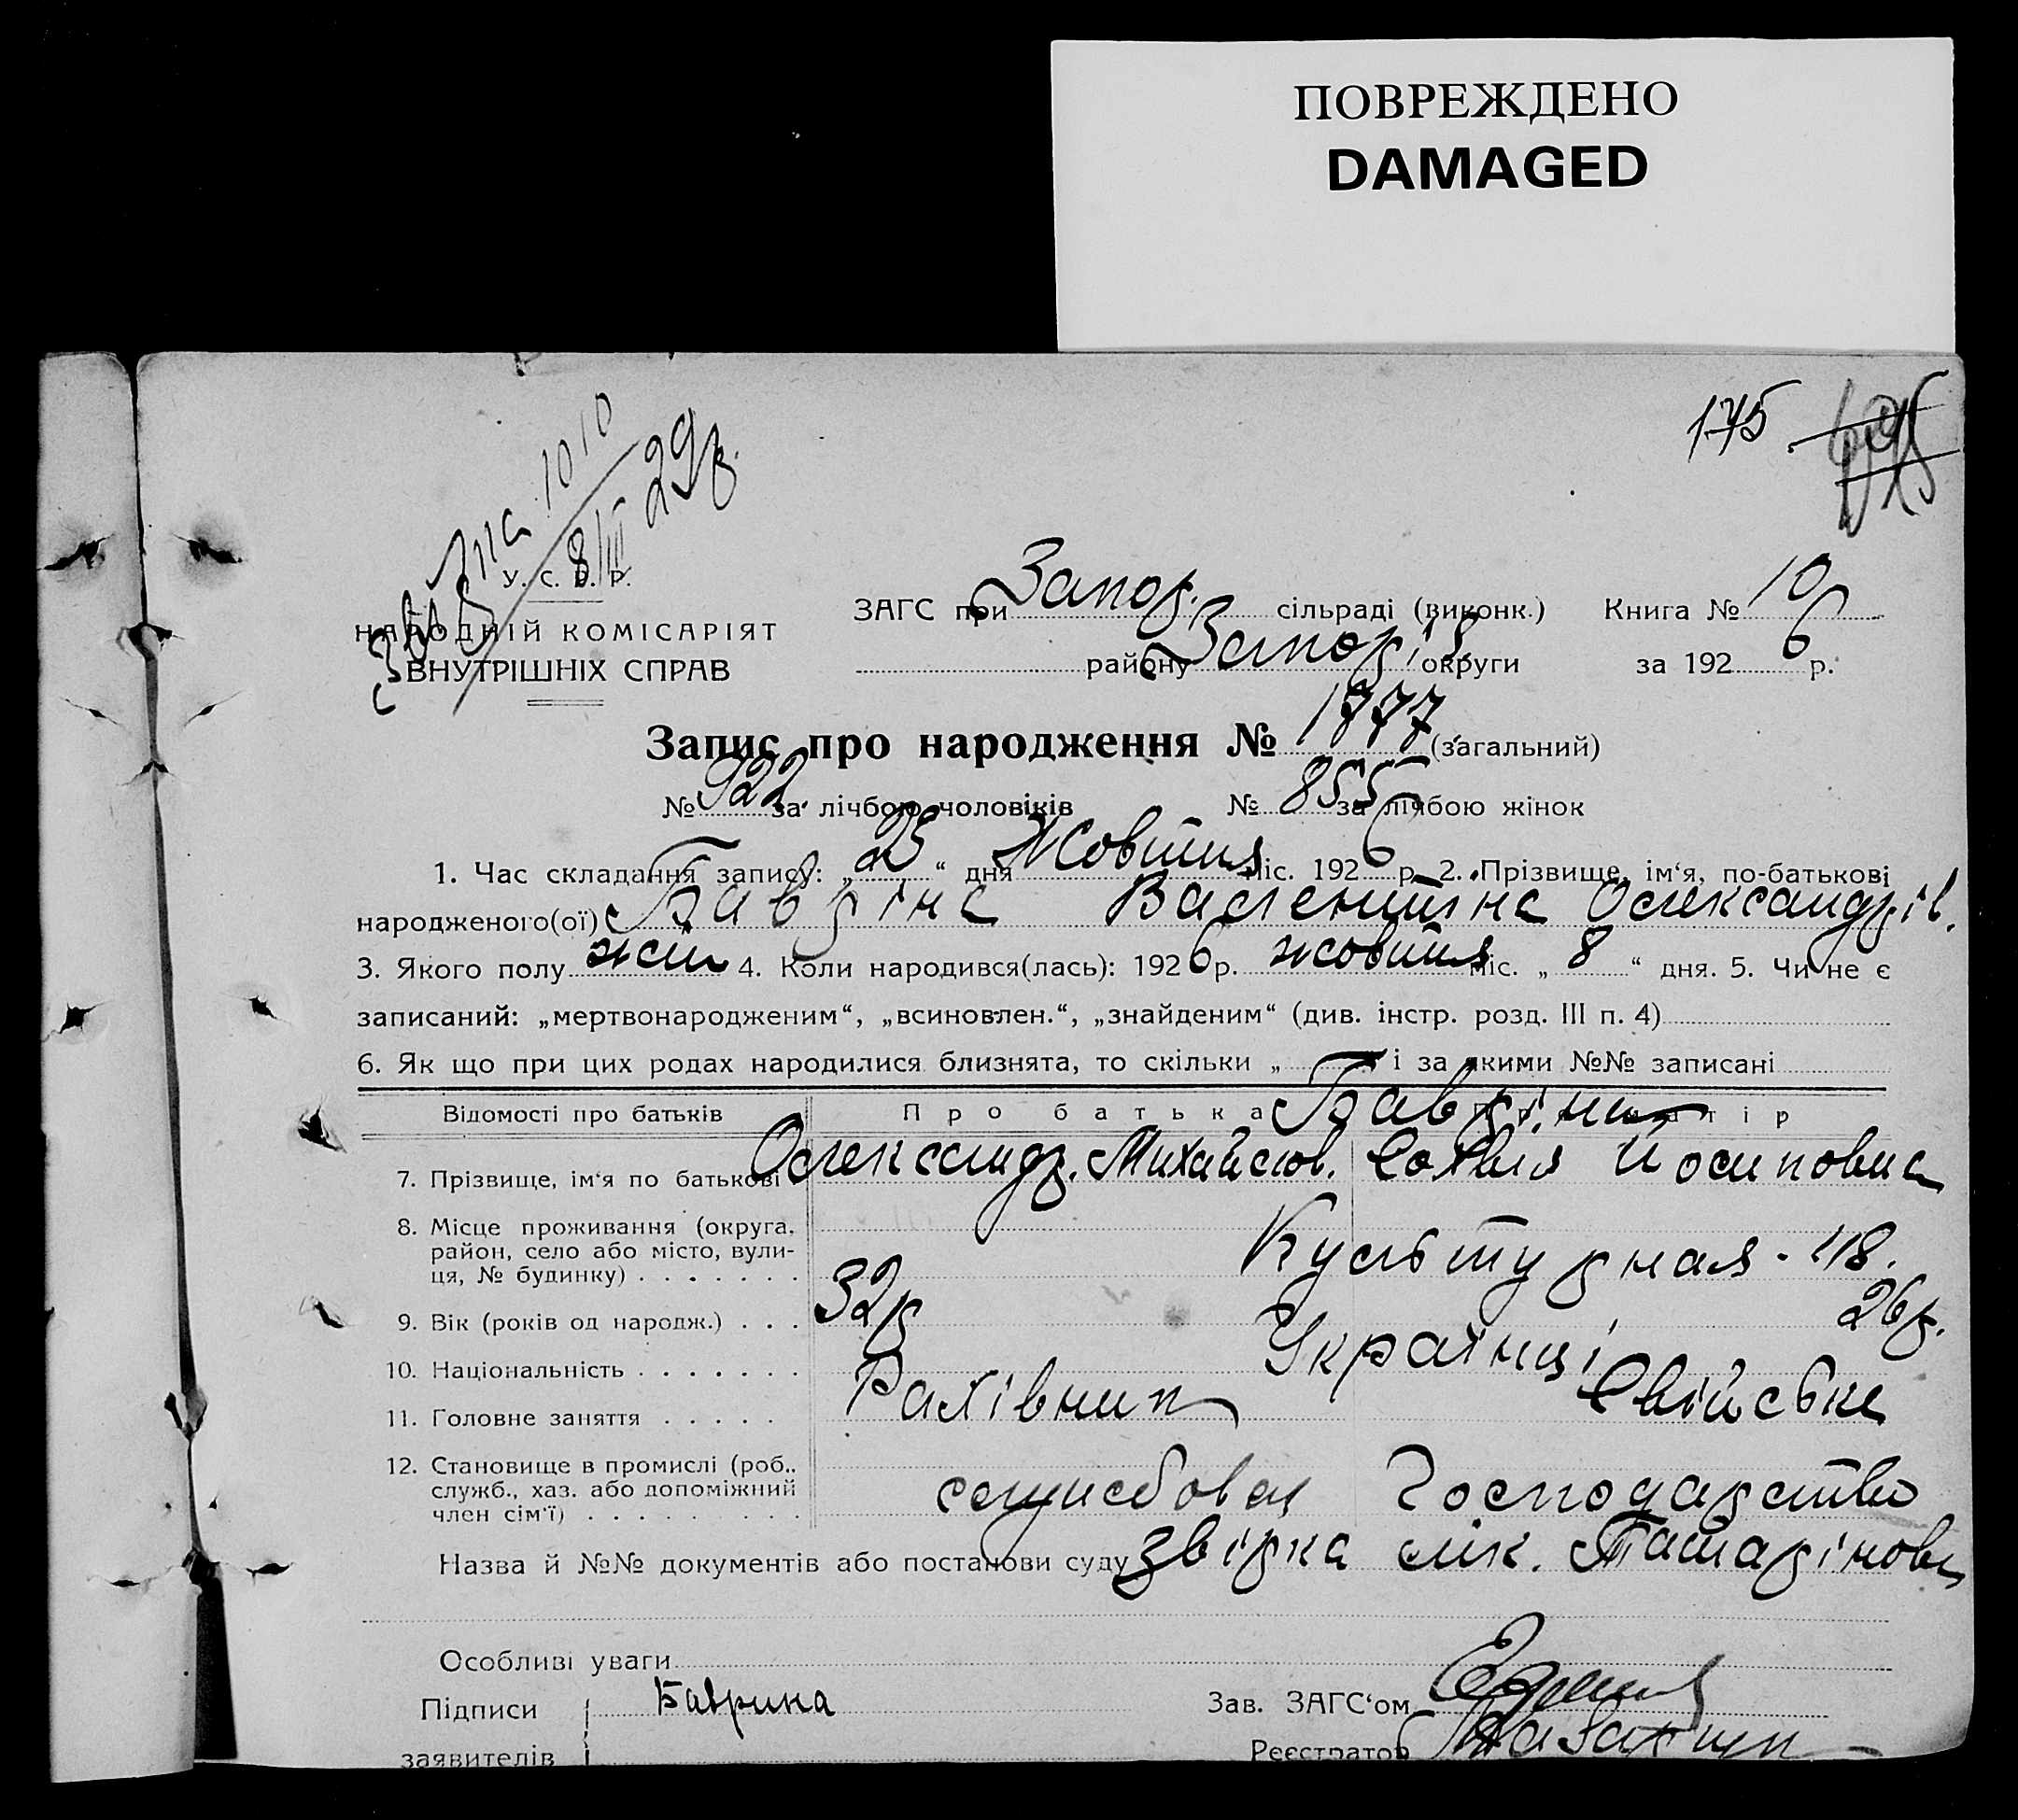 ПОВРЕЖДЕНО
DAMAGED
175
1010
8/III 29р.
У. С. Р. Р.
НАРОДНІЙ КОМІСАРІЯТ
ВНУТРІШНІХ СПРАВ
ЗАГС при Запор. сільраді (виконк.) Книга № 10
району Запоріз. округи за 1926 р.
Запис про народження № 1777 (загальний)
№ 922 за лічбою чоловіків № 855 за лічбою жінок
1. Час складання запису: „25“ дня Жовтня міс. 1926 р. 2. Прізвище, ім‘я, по-батькові
народженого(ої) Бавріна Валентіна Олександрів.
3. Якого полу жін 4. Коли народився(лась): 1926 р. жовтня міс. „8“ дня. 5. Чи не є
записаний: „мертвонародженим“, „всиновлен.“, „знайденим“ (див. інстр. розд. III п. 4)
6. Як що при цих родах народилися близнята, то скільки „ і за якими №№ записані
Відомості про батьків Про батька Бавріни матір
7. Прізвище, ім‘я по батькові Олександр. Михайлов. Софія Йосиповна
8. Місце проживання (округа,
район, село або місто, вули-
ця, № будинку) Культурная - 118.
9. Вік (років од народж.) 32р 26р.
10. Національність Українці
11. Головне заняття Рахівник Свійське
12. Становище в промислі (роб.,
служб., хаз. або допоміжний
член сім‘ї) службовец Господарство
Назва й №№ документів або постанови суду звірка лік. Татарінови
Особливі уваги
Підписи Баврина Зав. ЗАГС‘ом
заявителів Реєстратор